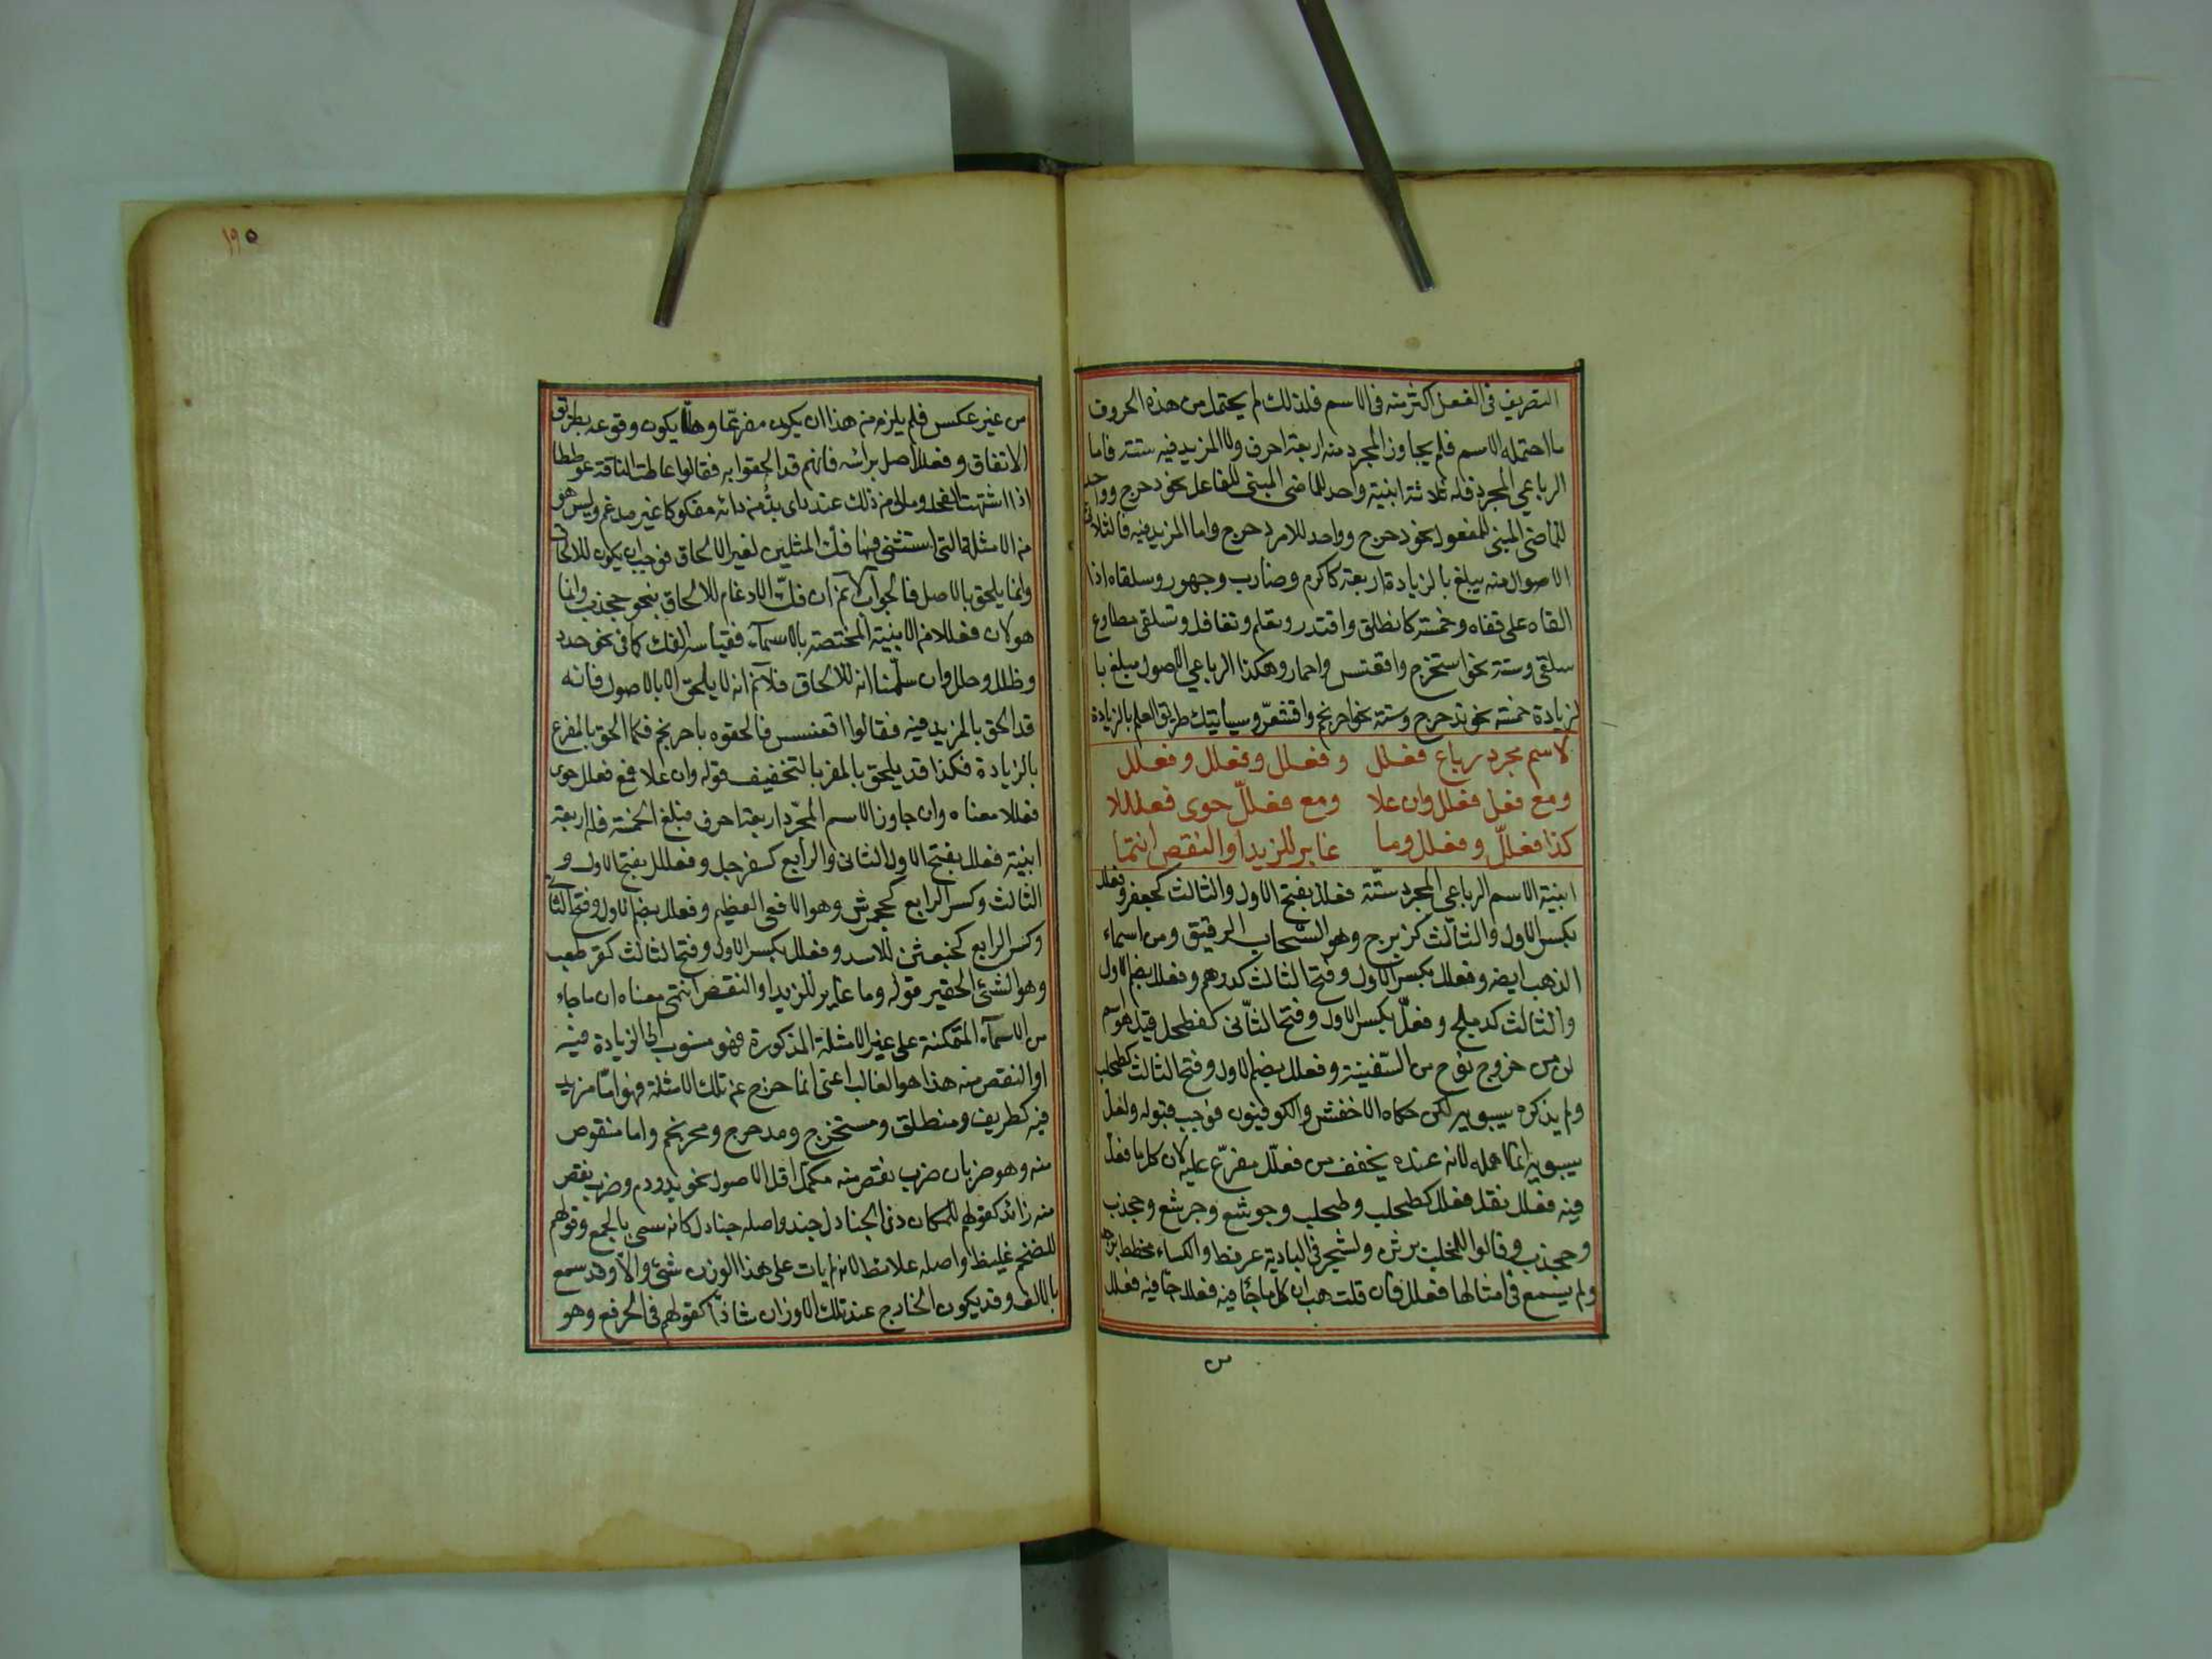 التصريف فى الفعل اكثر منه فى الاسم فلذلك لم يحتمل من هذه الحروف
ما احتمله الاسم فلم يجاوز المجرد منه اربعة احرف ولا المزيد فيه ستة فاما
الرباعي المجرد فله ثلاثة ابنية واحد للماضى المبنى للفاعل نحو دحرج وواحد
للماضى المبنى للمفعول نحو دحرج وواحد للامر دحرج واما المزيد فيه فالثلاثى
الاصول منه يبلغ بالزيادة اربعة كاكرم وضارب وجهور وسلقاه اذا
القاه على قفاه وخمسة كانطلق واقتدر وتعلم وتغافل وتسلقى مطاوع
سلقى وستة نحو استخرج واقعنسس واحمار وهكذا الرباعي الاصول يبلغ با
لزيادة خمسة نحو تدحرج وستة نحو احرنجم واقشعرّ وسياتيك طريق العلم بالزيادة
لاسم مجرد رباع فعلل وفعلل وفعلل وفعلل
ومع فعل فعلل وان علا ومع فعلّل حوى فعلللا
كذا فعلّل وفعلل وما غاير للزيد او النقص انتما
ابنية الاسم الرباعي المجرد ستّة فعلل بفتح الاول والثالث كجعفر وفعلل
بكسر الاول والثالث كزبرج وهو السّحاب الرقيق ومن اسماء
الذهب ايضه وفعلل بكسر الاول وفتح الثالث كدرهم وفعلل بضم الاول
والثالث كدملج وفعلّ بكسر الاول وفتح الثّانى كفطحل قيل هو اسم
لزمن خروج نوح من السّفينة وفعلل بضم الاول وفتح الثالث كطحلب
ولم يذكره سيبويه لكن حكاه الاخفش والكوفيّون فوجب قبوله ولعلّ
سيبويه انما اهمله لانه عنده يخفف من فعلّل مفرّع عليه لان كل ما فعل
فيه فعلل نقل فعلل كطحلب وطحلب وجرشع وجرشع وجخذب
وجخذب وقالوا للمخلب برثن ولشجر فى البادية عرفط والكساء مخطط برجد
ولم يسمع فى امثالها فعلل فان قلت هب ان كل ما جائا فيه فعلل جا فيه فعلل
من
١٩٥
من غير عكس فلم يلزم من هذا ان يكون مفرعا وهلّا يكون وقوعه بطريق
الاتفاق وفعللا اصل براسه فانهم قد الحقوا به فقالوا عاطت الناقة عوططا
اذا اشتهت الفحل وما لى من ذلك عندد اى بدّ منه دائه مفكوكا غير مدغم وليس هو
من الامثلة التى استثنى فيها فكّ المثلين لغير الالحاق فوجب ان يكون للالحاق
وانما يلحق بالاصل فالجواب لا نم ان فكّ الادغام للالحاق بنحو جخذب وانما
هو لان فعللا من الابنية المختصة بالاسماء فقياسه الفك كما فى نحو جدد
وظلل وحلل وان سلّمنا انه للالحاق فلا نم انه لا يلحق الا بالاصول فانه
قد الحق بالمزيد فيه فقالوا اقعنسس فالحقوه باحرنجم فكما الحق بالمفرع
بالزيادة فكذا قد يلحق بالمفرع بالتخفيف قوله وان علا فمع فعلل حوى
فعللا معناه وان جاوز الاسم المجرّد اربعة احرف فبلغ الخمسة فله اربعة
ابنية فعلل بفتح الاول الثانى والرابع كسفرجل وفعللل بفتح الاول و
الثالث وكسر الرابع كجحمرش وهو الافعى العظيم وفعلل بضم الاول وفتح الثانى
وكسر الرابع كخبعثن للاسد وفعلل بكسر الاول وفتح الثالث كقرطعب
وهو الشئ الحقير قوله وما غاير للزيد او النقص انتمى معناه ان ما جاء
من الاسماء المتمكنة على غير الامثلة المذكورة فهو منسوب الى الزيادة فيه
او النقص منه هذا هو الغالب اعنى انما خرج عن تلك الامثلة فهو امّا مزيد
فيه كطريف ومنطلق ومستخرج ومدحرج ومحرنجم واما منقوص
منه وهو ضربان ضرب نقص منه مكمّل اقل الاصول نحو يد ودم وضرب نقص
منه زائد كقولهم للمكان ذى الجنادل جندل واصله جنادل كانه سمى بالجمع وقولهم
للضخم غليظ واصله علابط لانه لم يات على هذا الوزن شئ والا وقد سمع
بالالف وقد يكون الخارج عن تلك الاوزان شاذّا كقولهم فى الحرفع وهو